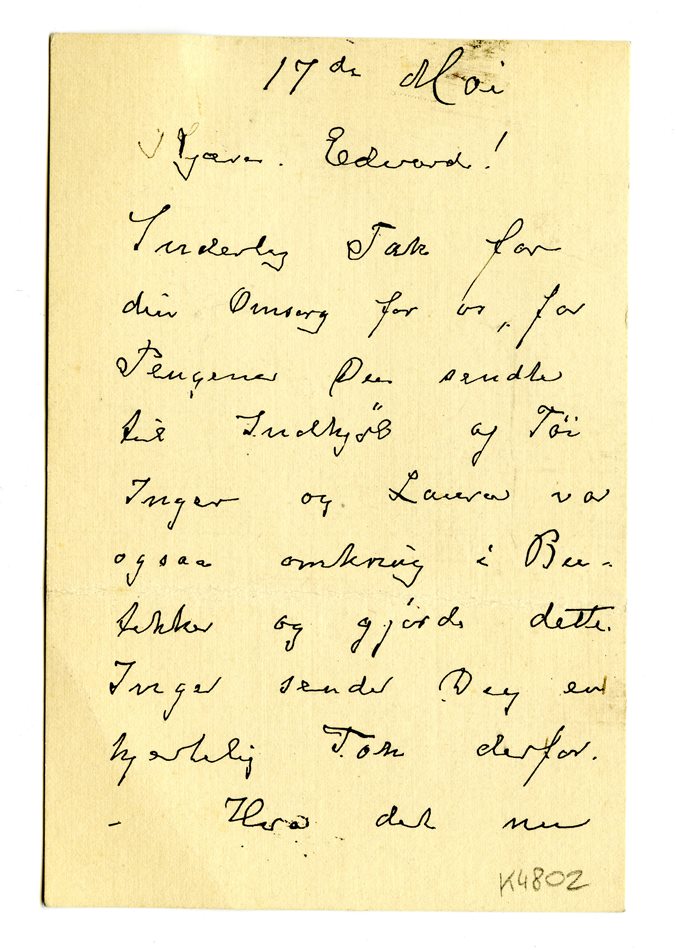 17de Mai
Kjære Edvard!
Inderlig Tak for
din Omsorg for os, for
Pengene Du sendte
til Indkjøb af Töi
Inger og Laura var
ogsaa omkring i Bu-
tikker og gjorde dette.
Inger sender Dig en
hjertelig Tak derfor.
- Hvo det nu
K4802